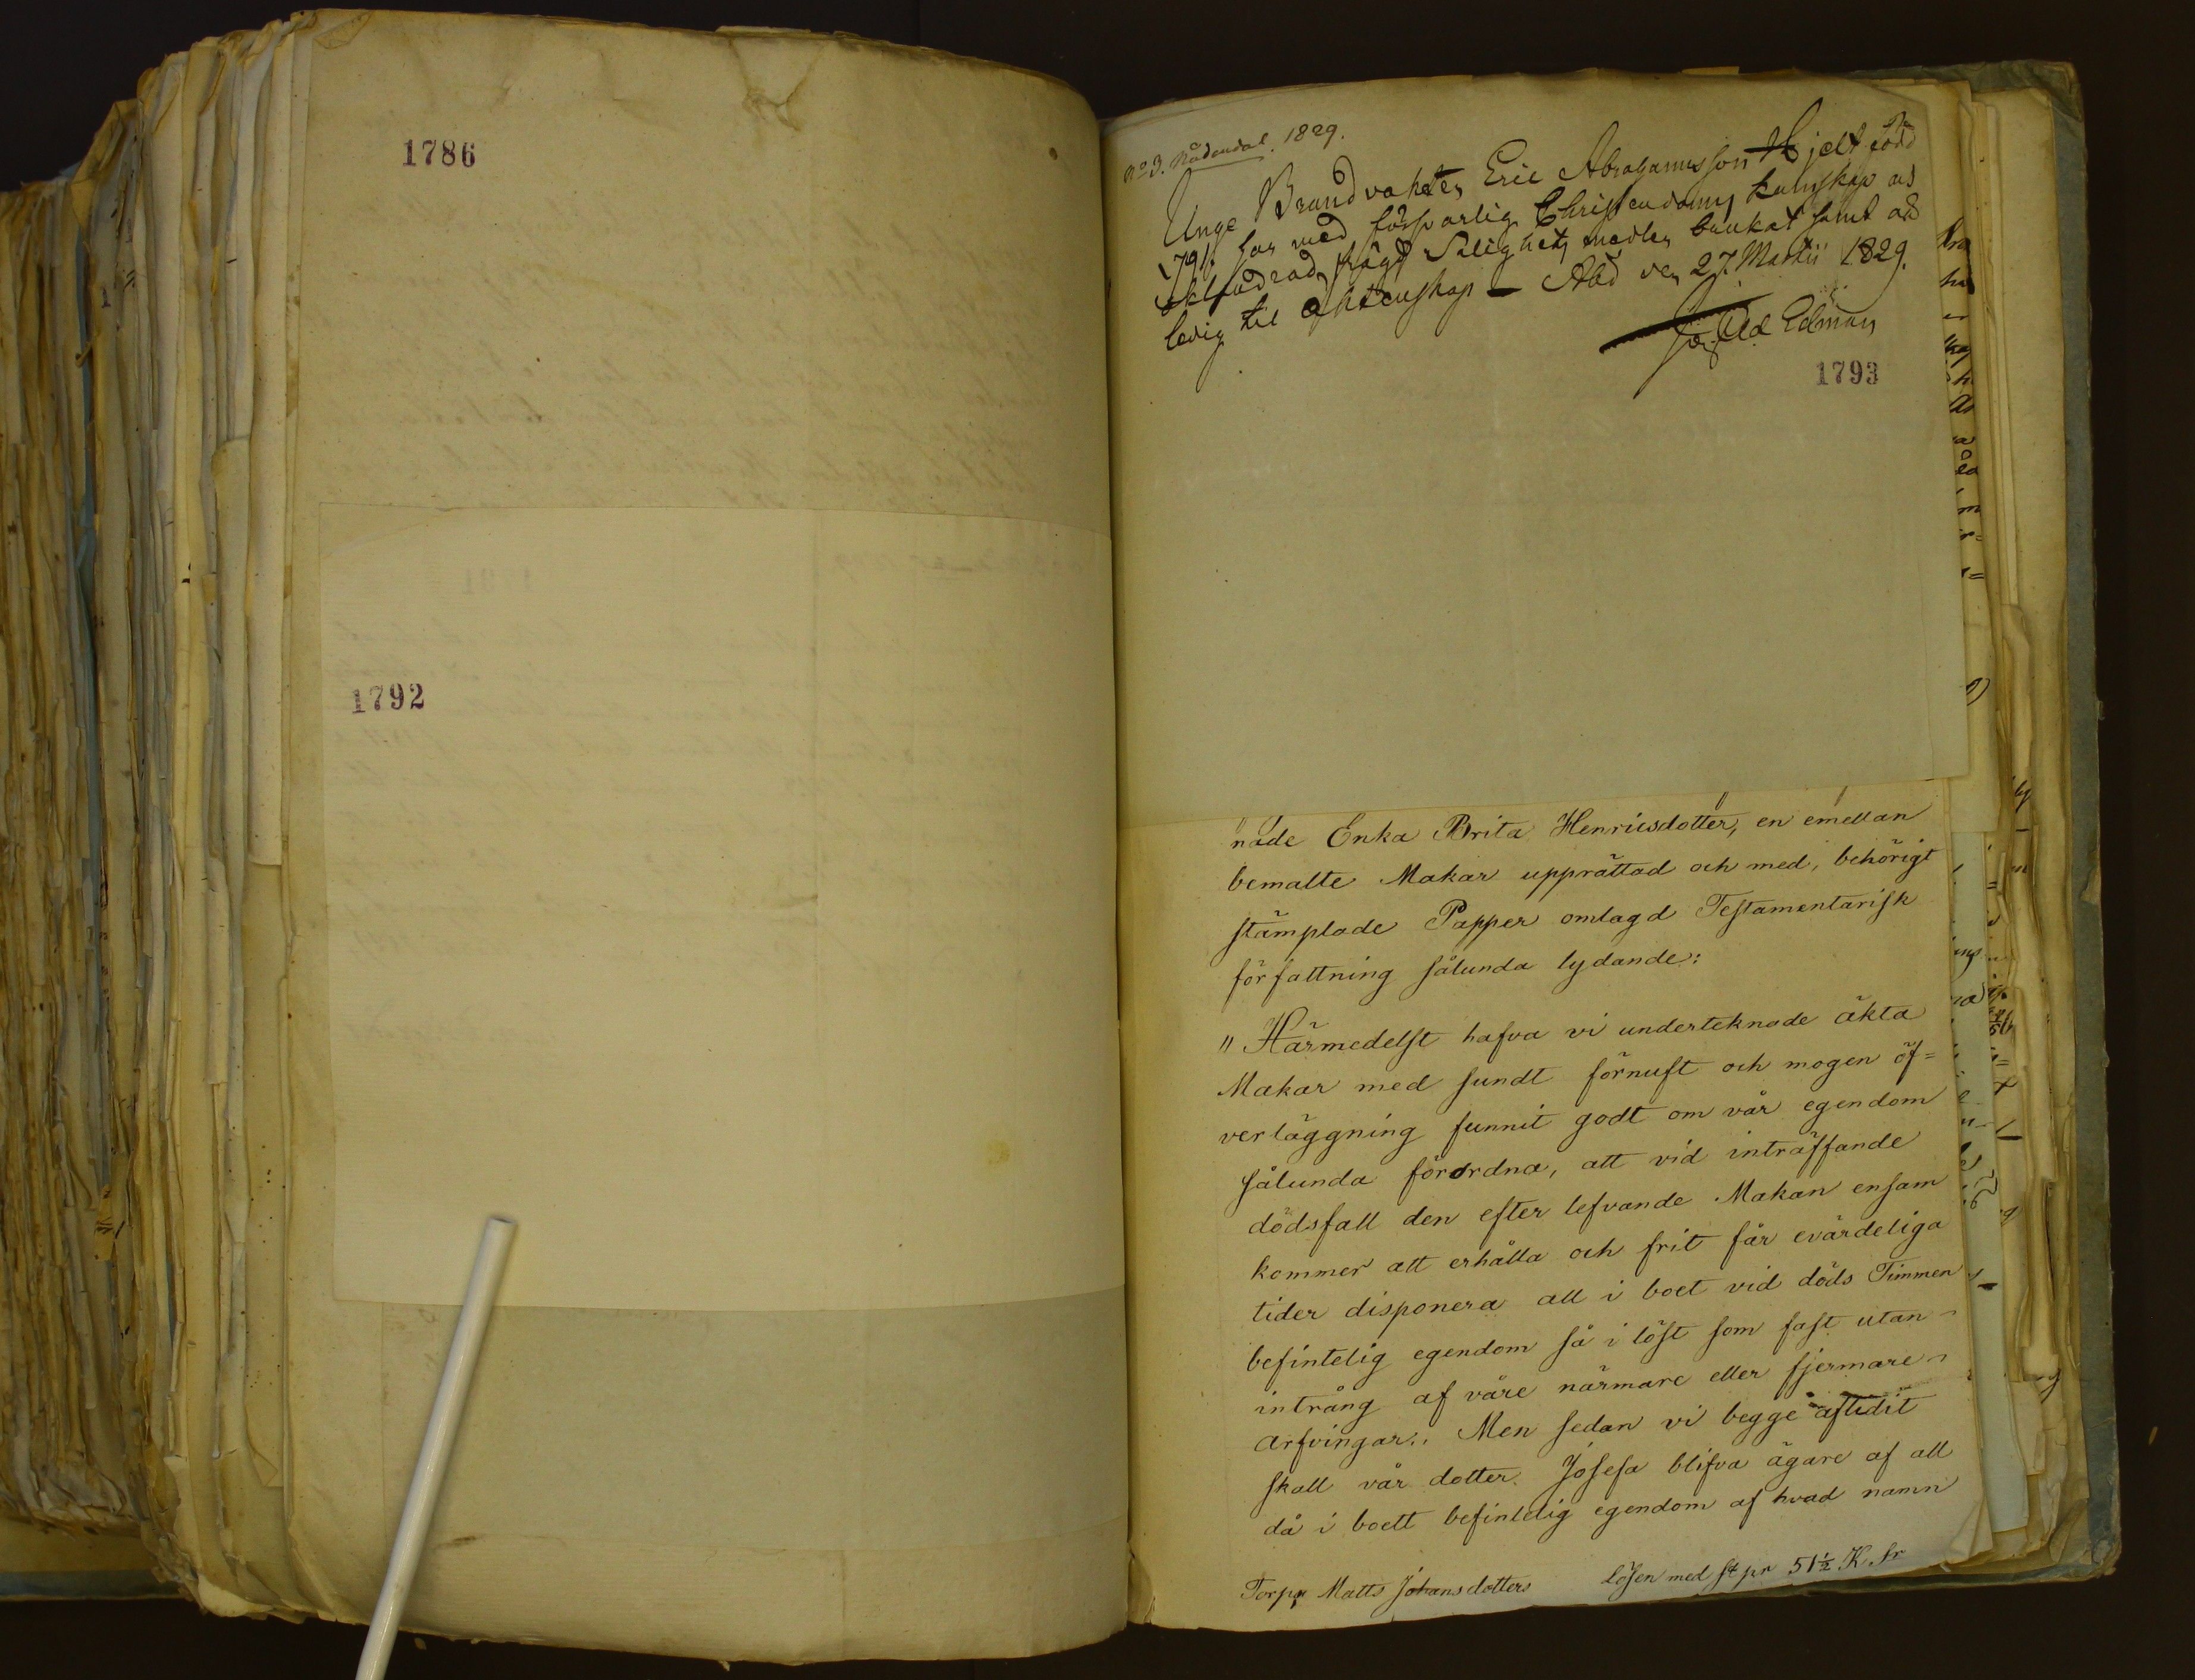 1786
1792
No 3. Nådendal. 1829.
Unge Brandvakten Eric Abrahamsson Hjelt född
1791. har med försvarlig Christendoms kunskap
Salighets medlen brukat samt är
ledig til äktenskap — Åbo den 27 Martii 1829.
Edman
1793
nade Enka Brita Henricsdotter, en emellan
bemalte Makar upprättad och med, behörigt
stämplade Papper omlagd Testamentarisk
författning sålunda lydande:
" Härmedelst hafva vi underteknade äkta
Makar med sundt förnuft och mogen öf=
verläggning funnit godt om vår egendom
sålunda förordna, att vid inträffande
dödsfall den efter lefvande Makan ensam
kommer att erhålla och frit får evärdeliga
tider disponera all i boet vid döds Timmen
befintelig egendom så i löst som fast utan
intrång af våre närmare eller fjermare
arfvingar. Men sedan vi begge aflidit
skall vår dotter Josefa blifva ägare af all
då i boett befintelig egendom af hvad namn
Torp: Matts Johansdotters Lösen med st pr 51½ K. Sr